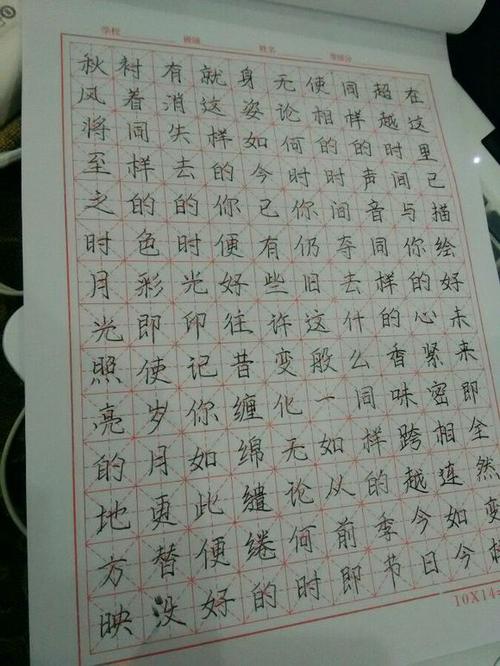 学校 班级 姓名
秋风将至之时月光照亮的地方映
衬着同样的色彩即使岁月更替没
有消失去的时光印记你如此便好
就这样的你便好往昔缠绵缱绻的
身姿如今已有些许变化无论何时
无论何时你仍旧这般一如从前即
使相的时间夺去什么同样的季节
同样的声音同样的香味跨越今日
超越时间与你的心紧密相连如今
在这里已描绘好未来即全然变
10X14=